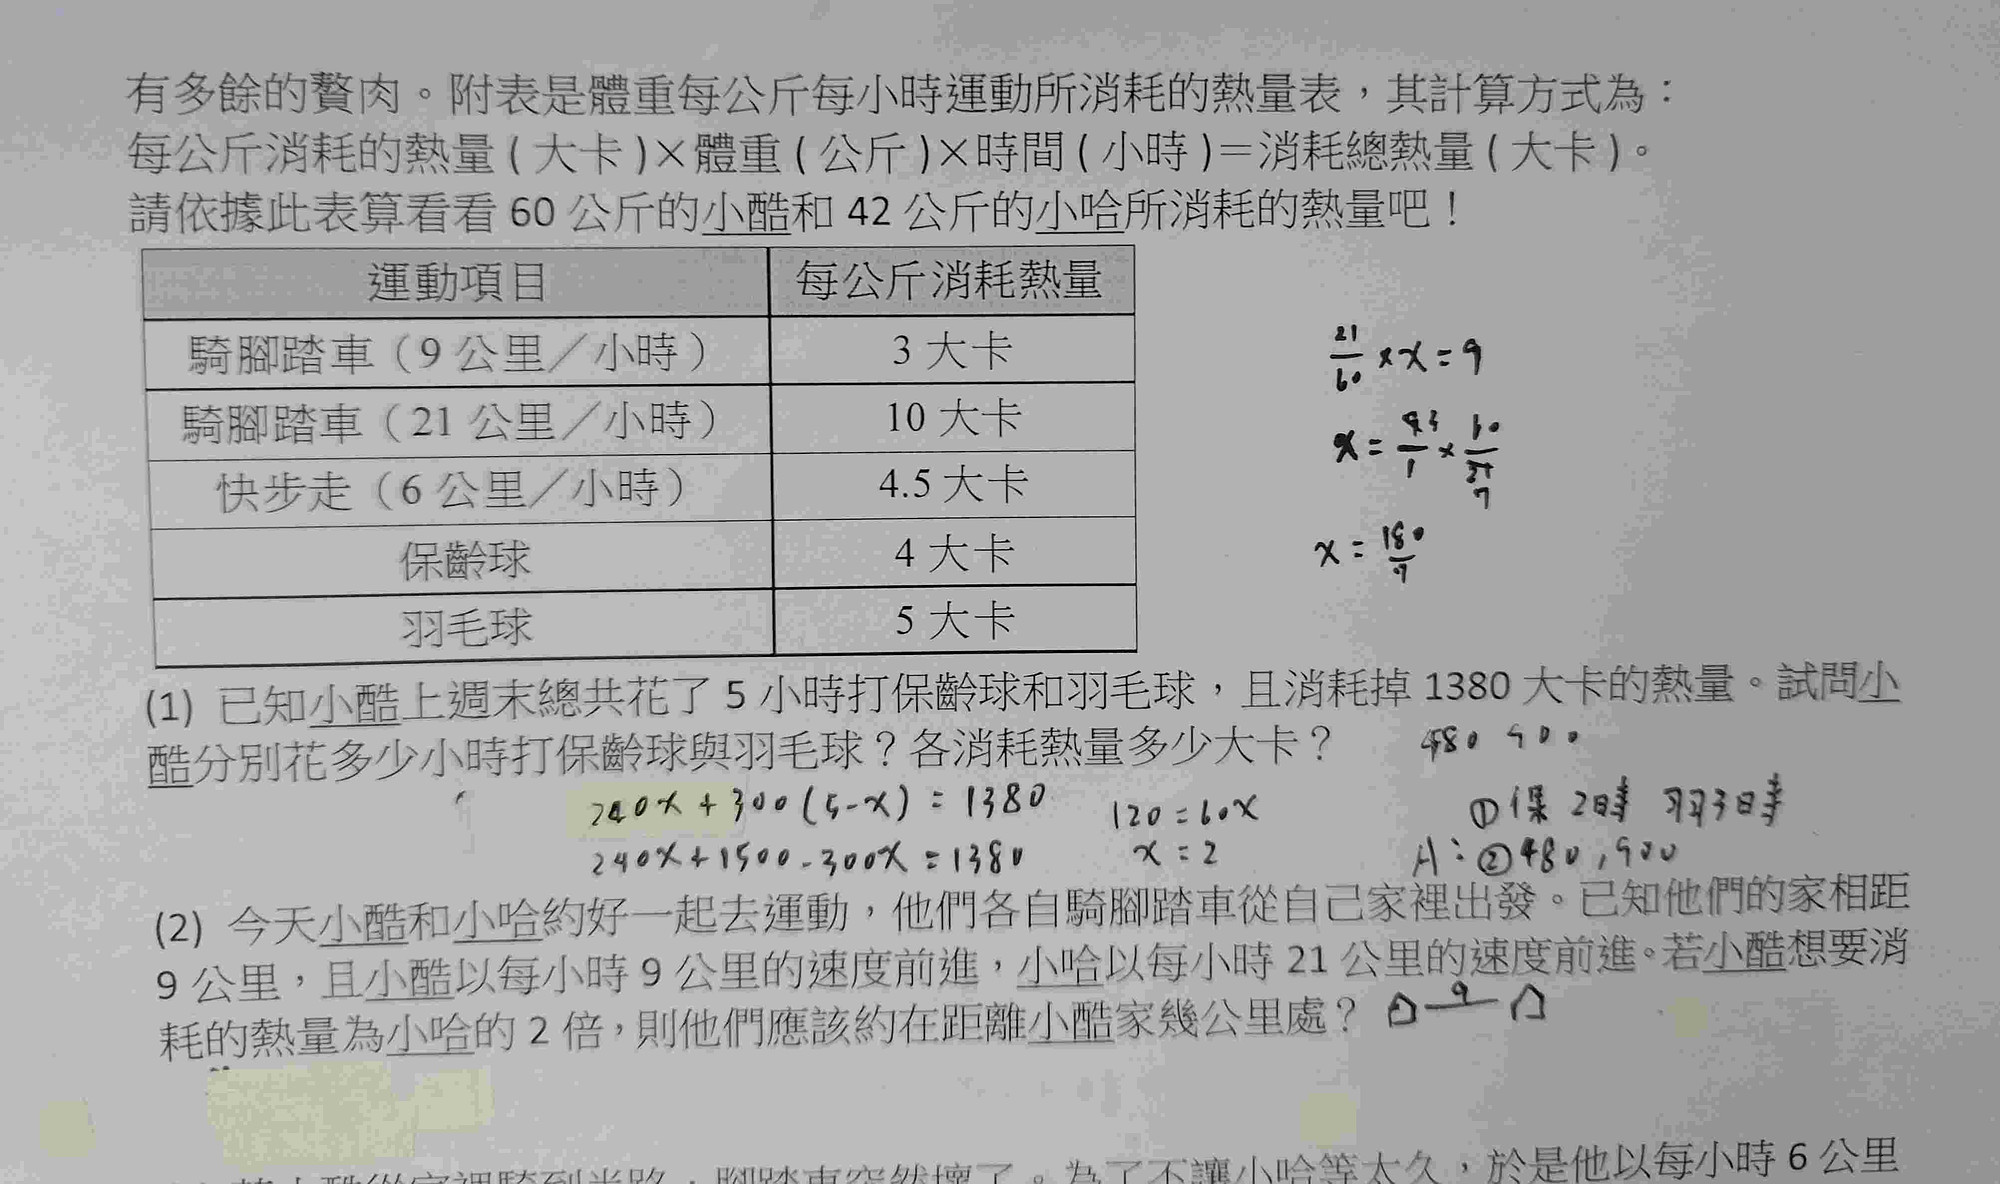 有多餘的贅肉。附表是體重每公斤每小時運動所消耗的熱量表，其計算方式為：
每公斤消耗的熱量(大卡)×體重(公斤)×時間(小時)＝消耗總熱量(大卡)。
請依據此表算看看 60 公斤的小酷和 42 公斤的小哈所消耗的熱量吧！
運動項目 每公斤消耗熱量
騎腳踏車（9 公里／小時） 3 大卡
騎腳踏車（21 公里／小時） 10 大卡
快步走（6 公里／小時） 4.5 大卡
保齡球 4 大卡
羽毛球 5 大卡
21/60 × x = 9
x = 180/7
(1) 已知小酷上週末總共花了 5 小時打保齡球和羽毛球，且消耗掉 1380 大卡的熱量。試問小
酷分別花多少小時打保齡球與羽毛球？各消耗熱量多少大卡？
480 900
240x + 300(5-x) = 1380
120 = 60x
①保 2時 羽3時
240x + 1500 - 300x = 1380
x = 2
A：②480,900
(2) 今天小酷和小哈約好一起去運動，他們各自騎腳踏車從自己家裡出發。已知他們的家相距
9 公里，且小酷以每小時 9 公里的速度前進，小哈以每小時 21 公里的速度前進。若小酷想要消
耗的熱量為小哈的 2 倍，則他們應該約在距離小酷家幾公里處？
9
從家裡騎到半路，腳踏車突然壞了。為了不讓小哈等太久，於是他以每小時 6 公里